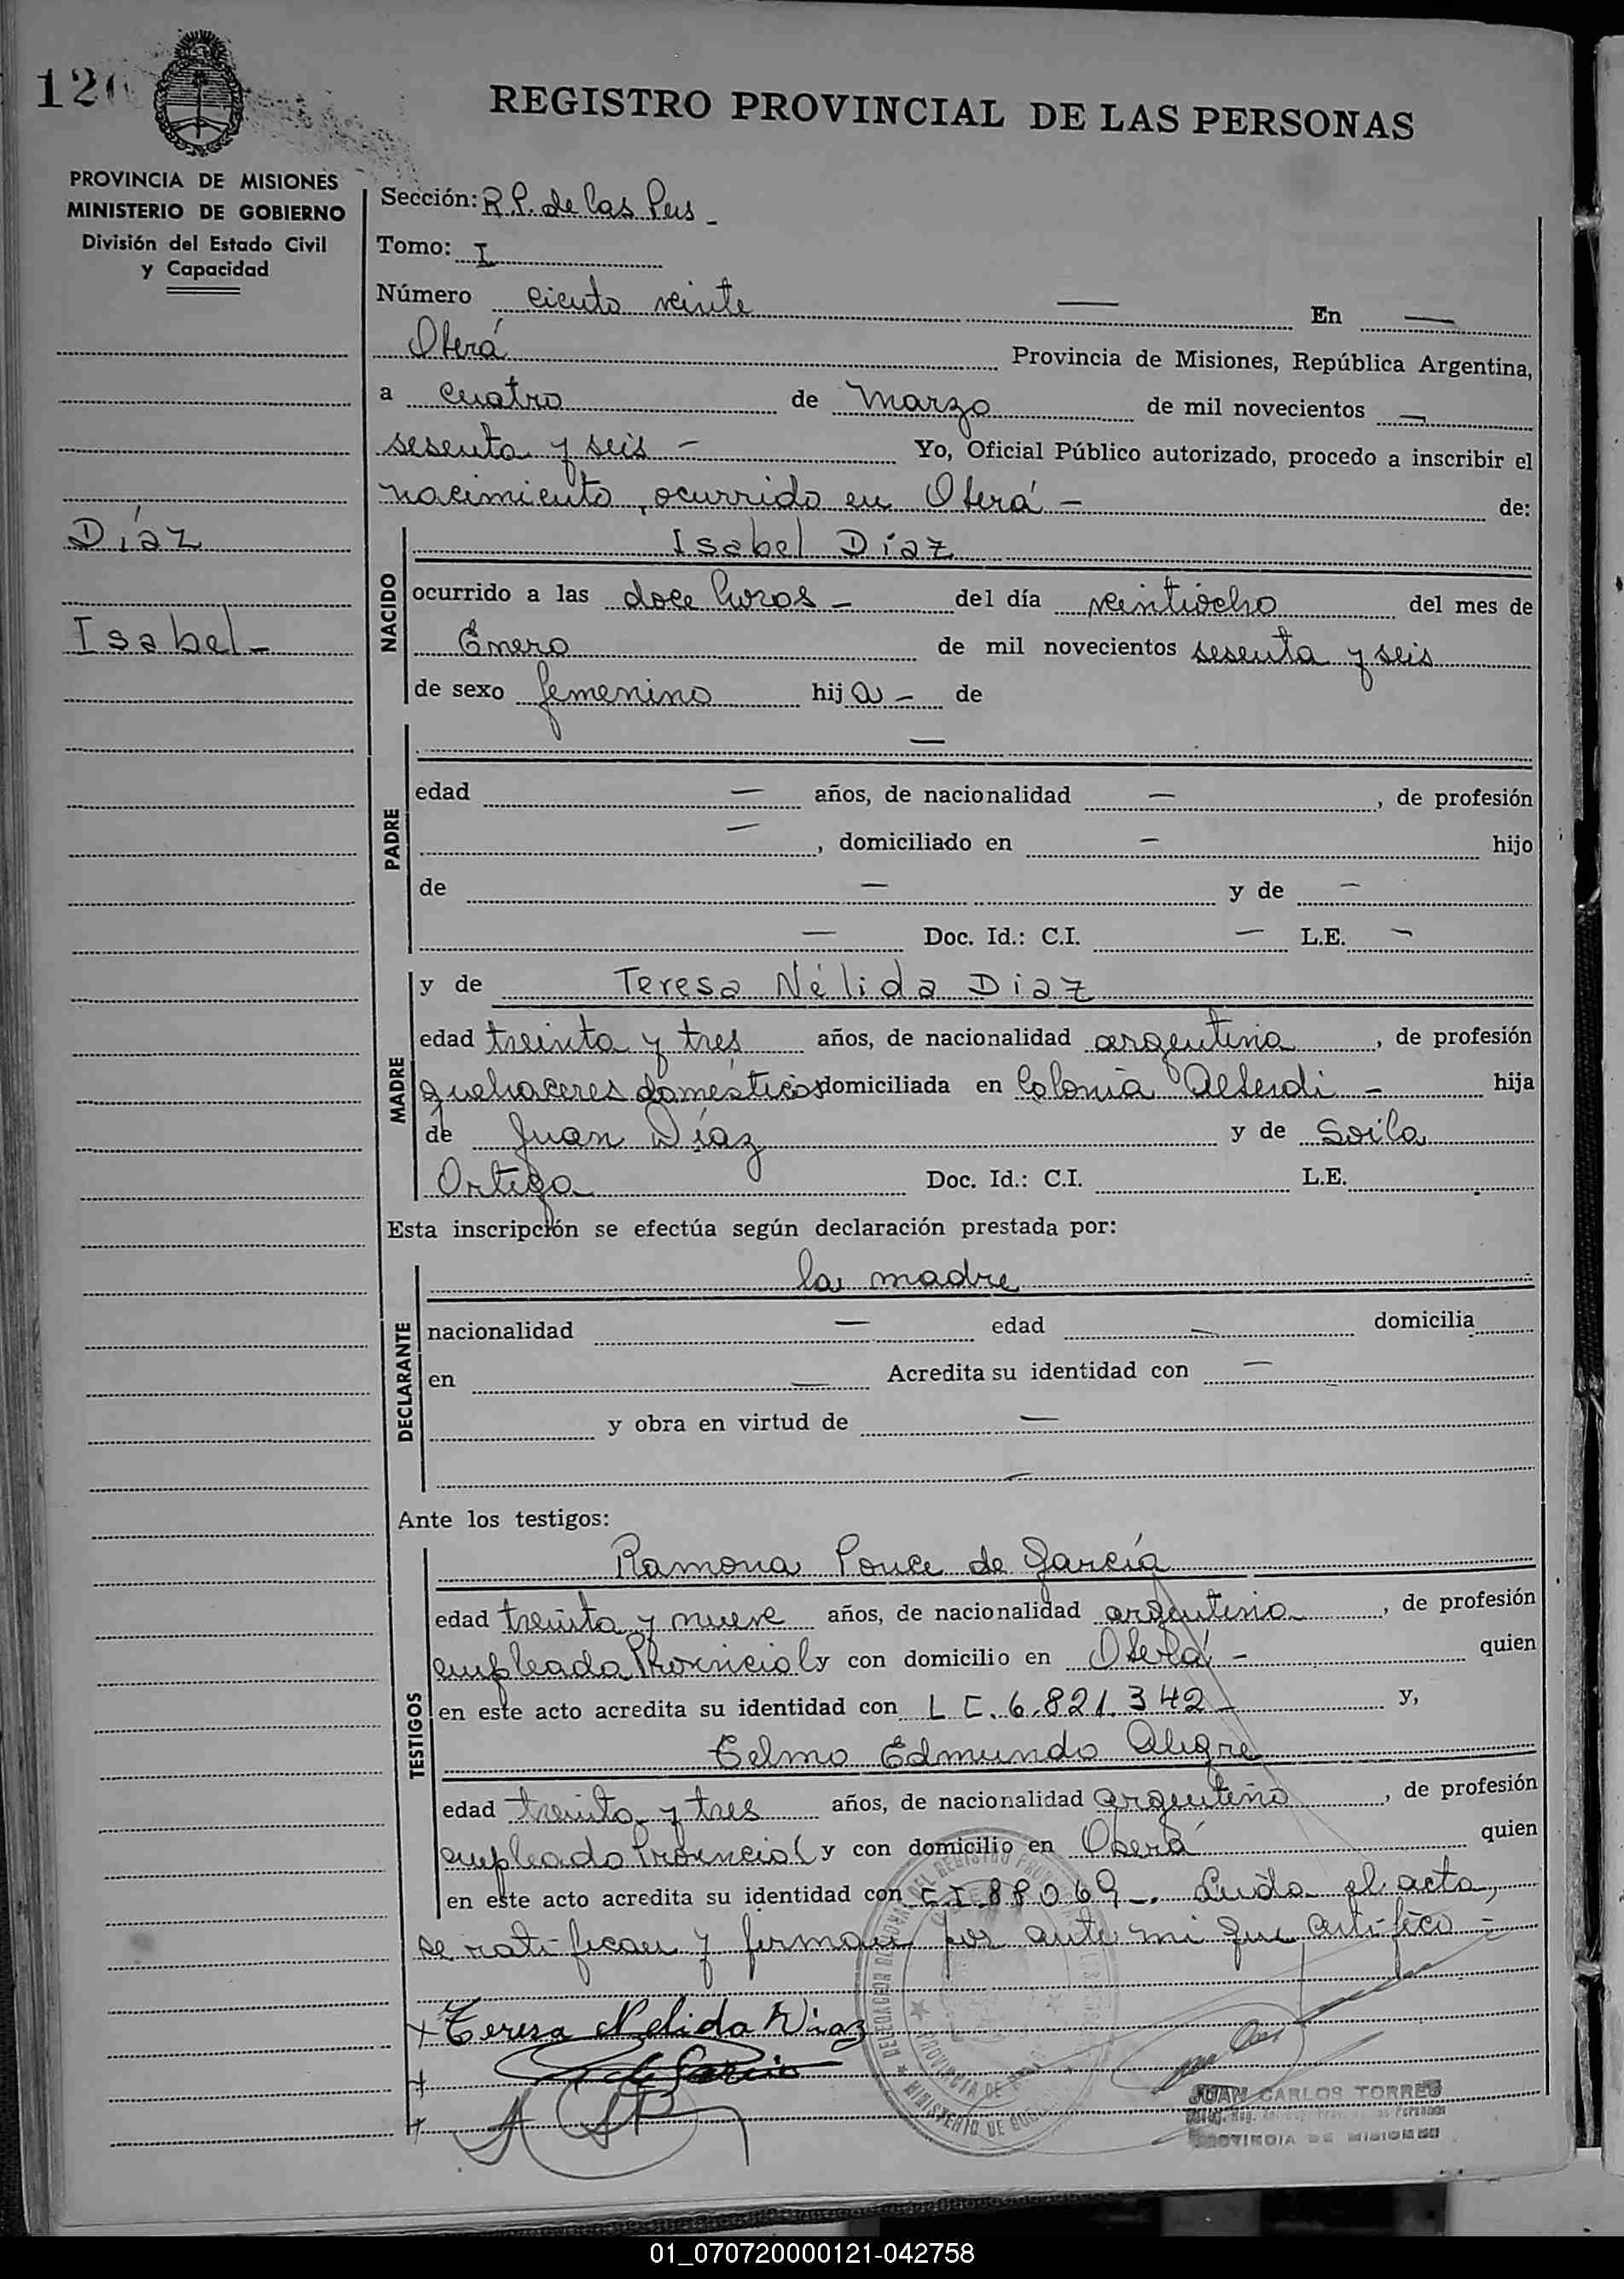 120
REGISTRO PROVINCIAL DE LAS PERSONAS
PROVINCIA DE MISIONES
MINISTERIO DE GOBIERNO
División del Estado Civil
y Capacidad
Sección: R.P. de las Pers -
Tomo: I
Número ciento veinte — En —
Oberá Provincia de Misiones, República Argentina,
a cuatro de Marzo de mil novecientos —
sesenta y seis - Yo, Oficial Público autorizado, procedo a inscribir el
nacimiento, ocurrido en Oberá - de:
Díaz
Isabel -
NACIDO
Isabel Díaz
ocurrido a las doce horas - del día veintiocho del mes de
Enero de mil novecientos sesenta y seis
de sexo femenino hija - de
PADRE
—
edad — años, de nacionalidad —, de profesión
—, domiciliado en — hijo
de — y de —
— Doc. Id.: C.I. — L.E. —
MADRE
y de Teresa Nélida Diaz
edad treinta y tres años, de nacionalidad argentina, de profesión
quehaceres domésticos domiciliada en Colonia Alberdi - hija
de Juan Díaz y de Soila
Ortega Doc. Id.: C.I. L.E.
Esta inscripción se efectúa según declaración prestada por:
DECLARANTE
la madre
nacionalidad — edad — domicilia
en — Acredita su identidad con —
y obra en virtud de —
—
Ante los testigos:
TESTIGOS
Ramona Ponce de García
edad treinta y nueve años, de nacionalidad argentina, de profesión
empleada Provincial y con domicilio en Oberá - quien
en este acto acredita su identidad con L C. 6.821.342 - y,
Telmo Edmundo Alegre
edad treinta y tres años, de nacionalidad argentino, de profesión
empleado Provincial y con domicilio en Oberá quien
en este acto acredita su identidad con C I. 88069 -. Leída el acta,
se ratifican y firman por ante mi que certifico -
x Teresa Nelida Diaz
R de Garcia
JUAN CARLOS TORRES
PROVINCIA DE MISIONES
MINISTERIO DE
01_070720000121-042758